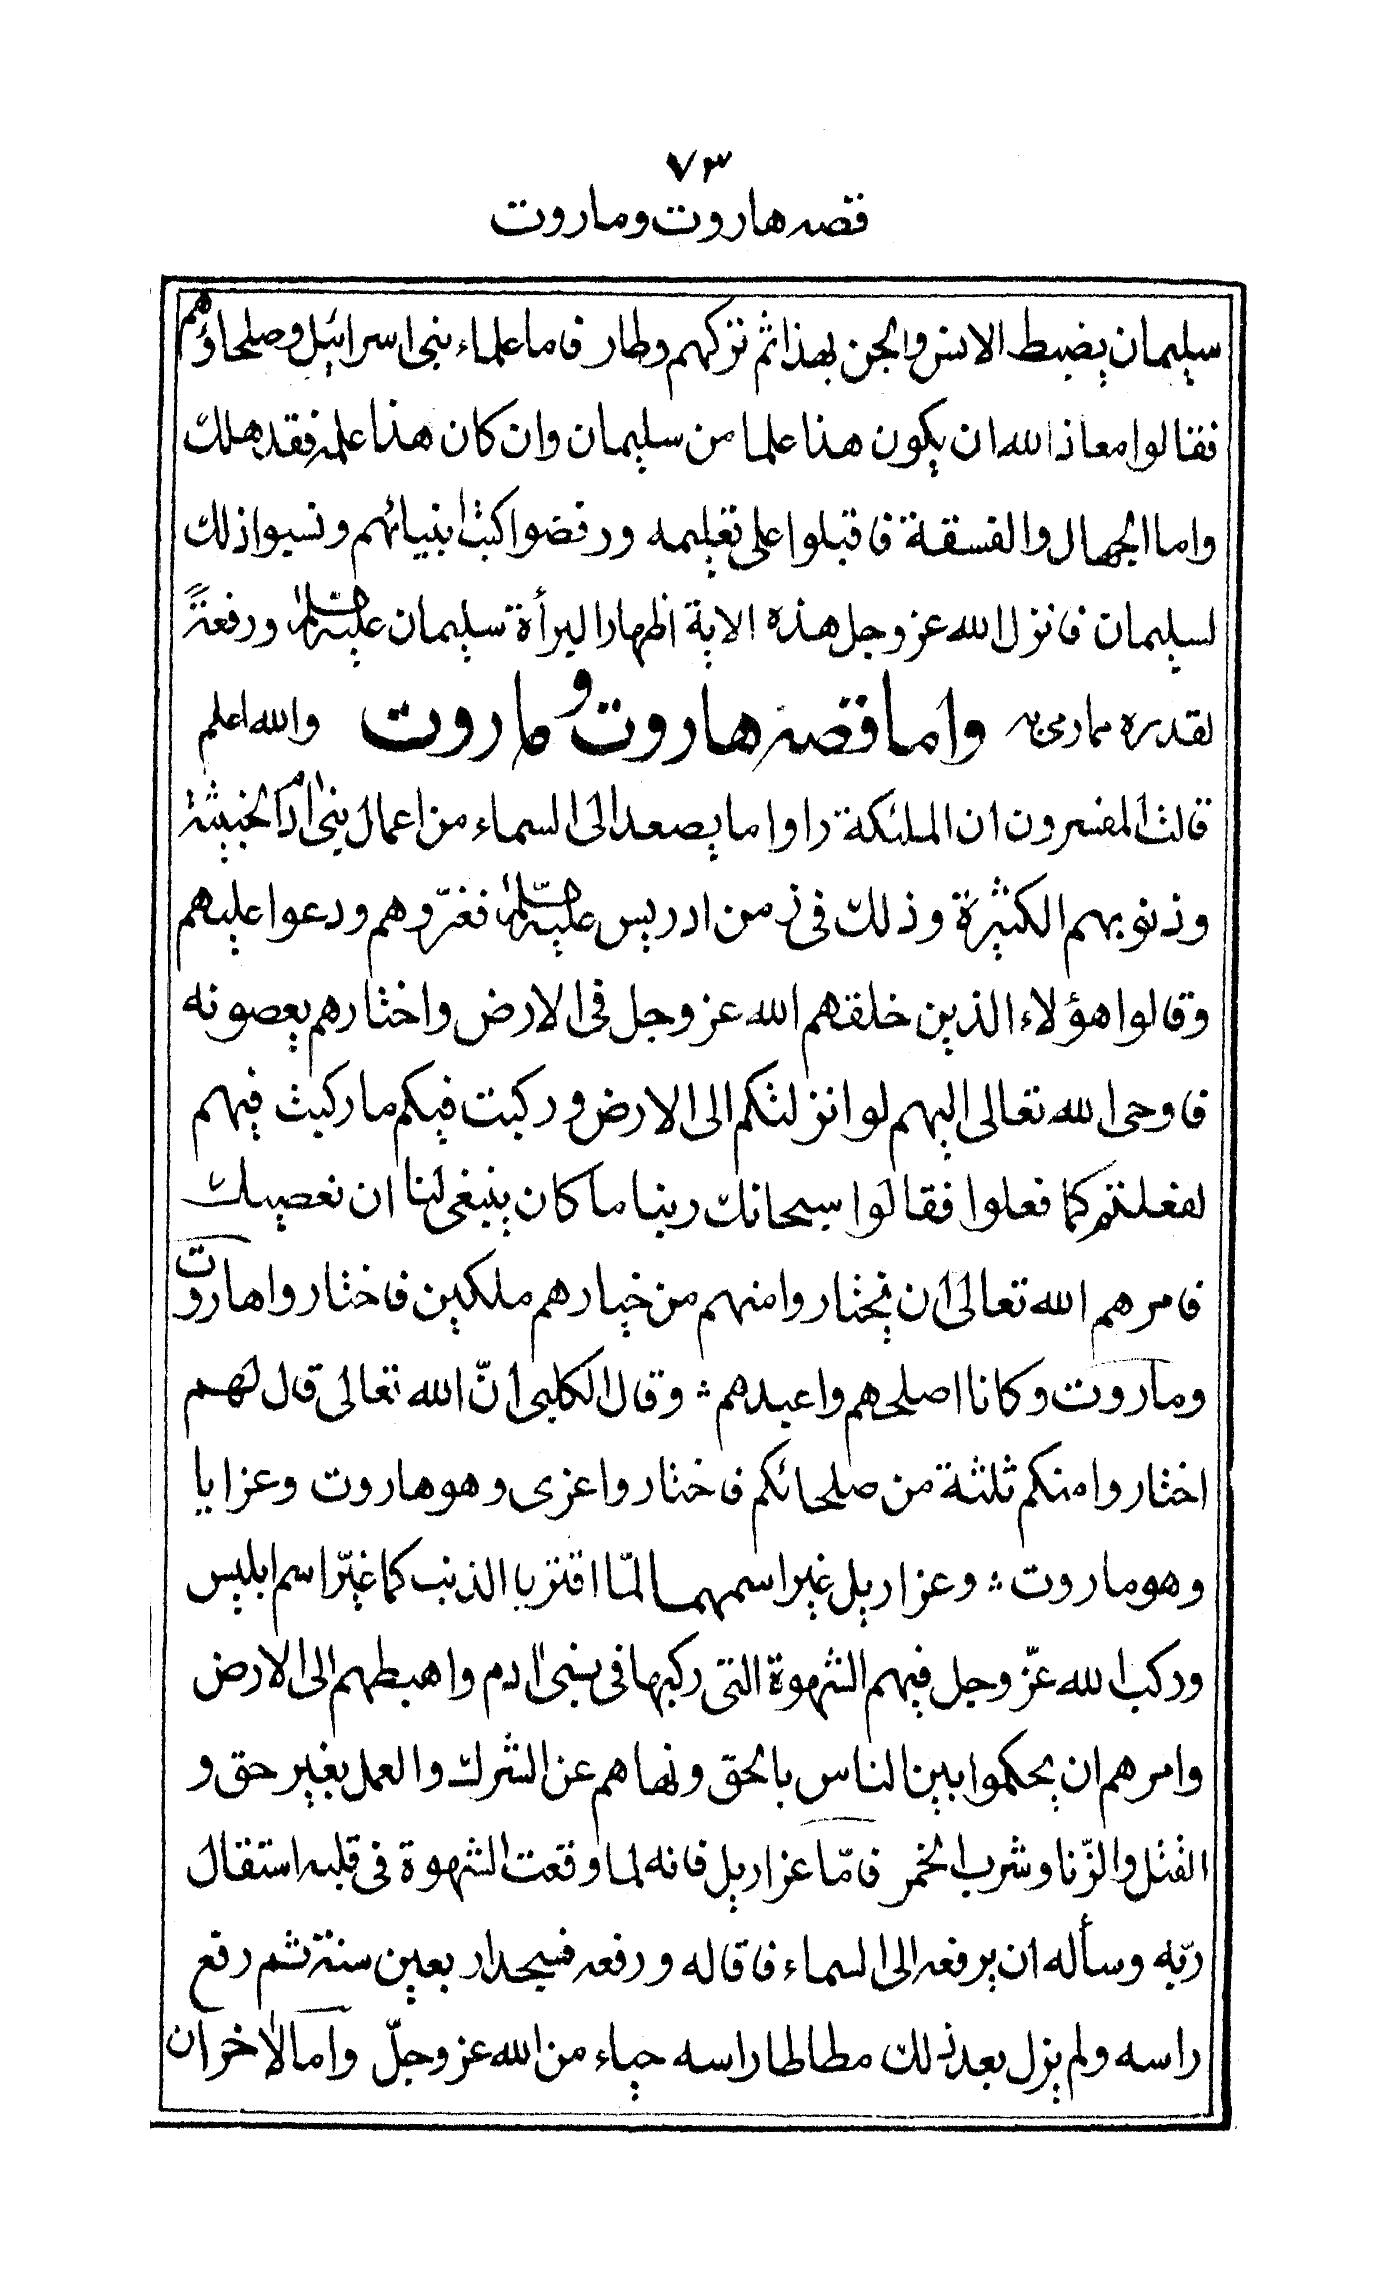 ٧٣
قصه هاروت وماروت
سليمان يضبط الانس والجن بهذا ثم تركهم وطار فاما علماء بنى اسرائيل وصلحاؤهم
فقالوا معاذ الله ان يكون هذا علما من سليمان وان كان هذا علمه فقد هلك
واما الجهال والفسقة فاقبلوا على تعليمه ورفضوا كتب انبيائهم ونسبوا ذلك
لسليمان فانزل الله عز وجل هذه الاية اظهارا لبرأة سليمان عليه السلم ورفعةً
لقدره مما رمى به واما قصة هاروت وماروت والله اعلم
قالت المفسرون ان الملئكة راوا ما يصعد الى السماء من اعمال بنى ادم الخبيثة
وذنوبهم الكثيرة وذلك فى زمن ادريس عليه السلم فغيّروهم ودعوا عليهم
وقالوا هؤلاء الذين خلقهم الله عز وجل فى الارض واختارهم يعصونه
فاوحى الله تعالى اليهم لو انزلتكم الى الارض وركبت فيكم ما ركبت فيهم
لفعلتم كما فعلوا فقالوا سبحانك ربنا ما كان ينبغى لنا ان نعصيك
فامرهم الله تعالى ان يختاروا منهم من خيارهم ملكين فاختاروا هاروت
وماروت وكانا اصلحهم واعبدهم ؞ وقال الكلبى انّ الله تعالى قال لهم
اختاروا منكم ثلثة من صلحائكم فاختاروا عزى وهو هاروت وعزايا
وهو ماروت ؞ وعزاريل غير اسمهما لمّا اقتربا الذنب كما غيّر اسم ابليس
وركب الله عزّ وجل فيهم الشهوة التى ركبها فى بنى ادم واهبطهم الى الارض
وامرهم ان يحكموا بين الناس بالحقّ ونهاهم عن الشرك والعمل بغير حق و
القتل والزّنا وشرب الخمر فامّا عزاريل فانه لما وقعت الشهوة فى قلبه استقال
ربّه وسأله ان يرفعه الى السماء فاقاله ورفعه فسجد اربعين سنة ثم رفع
راسه ولم يزل بعد ذلك مطاطا راسه حياء من الله عز وجلّ واما الاخران